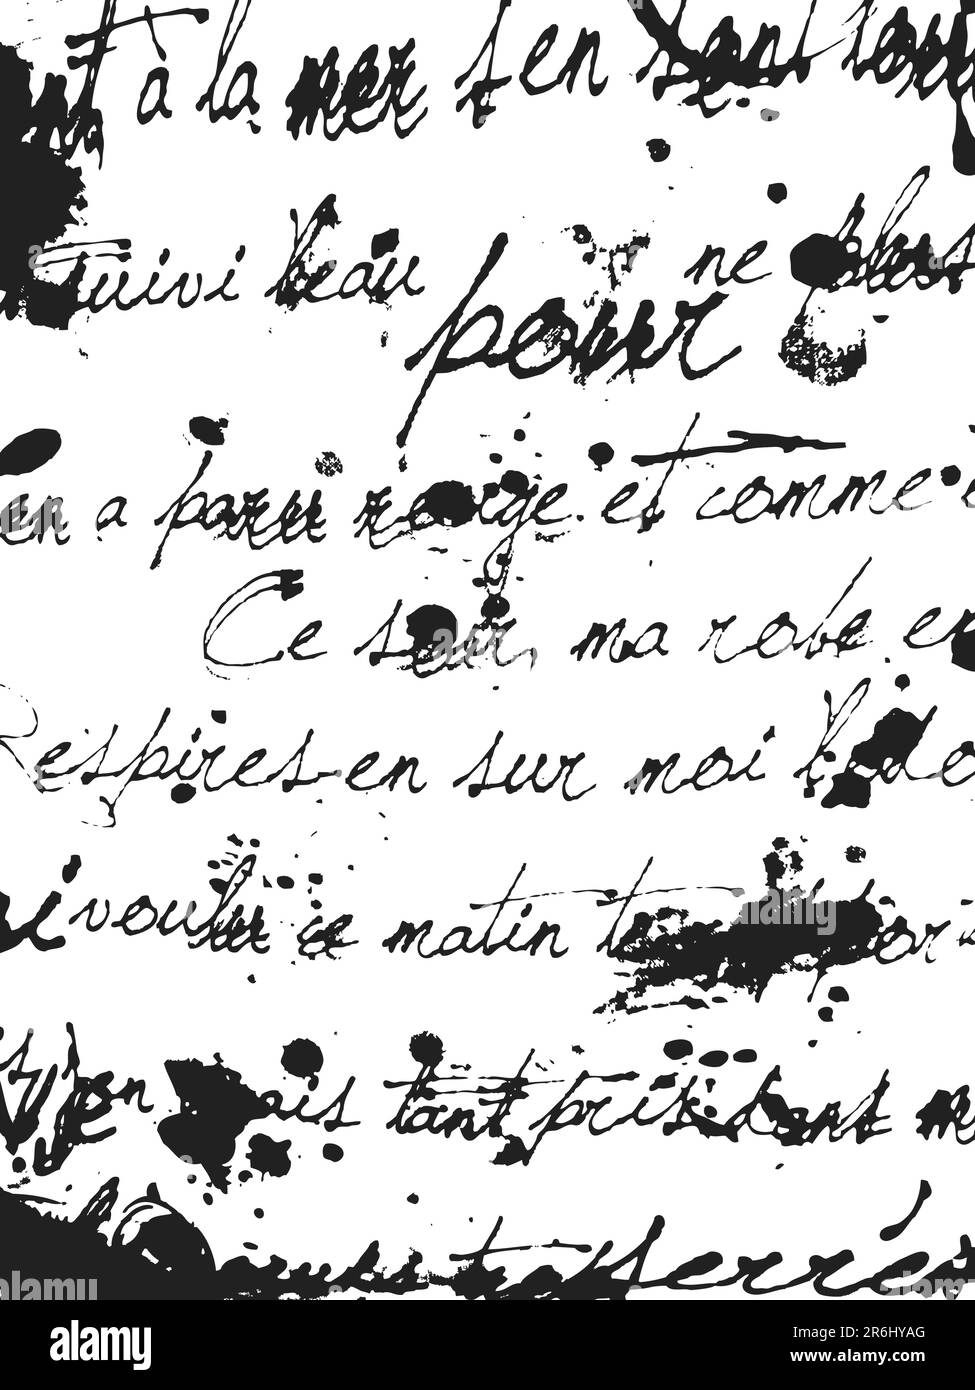 à la mer s'en sont
suivi l'eau ne plus
pour
en a paru rouge et comme
Ce soir, ma robe en
Respires-en sur moi l'odo
voulu ce matin
j'en ais tant pris dans m
serré
alamy
Image ID: 2R6HYAG
www.alamy.com